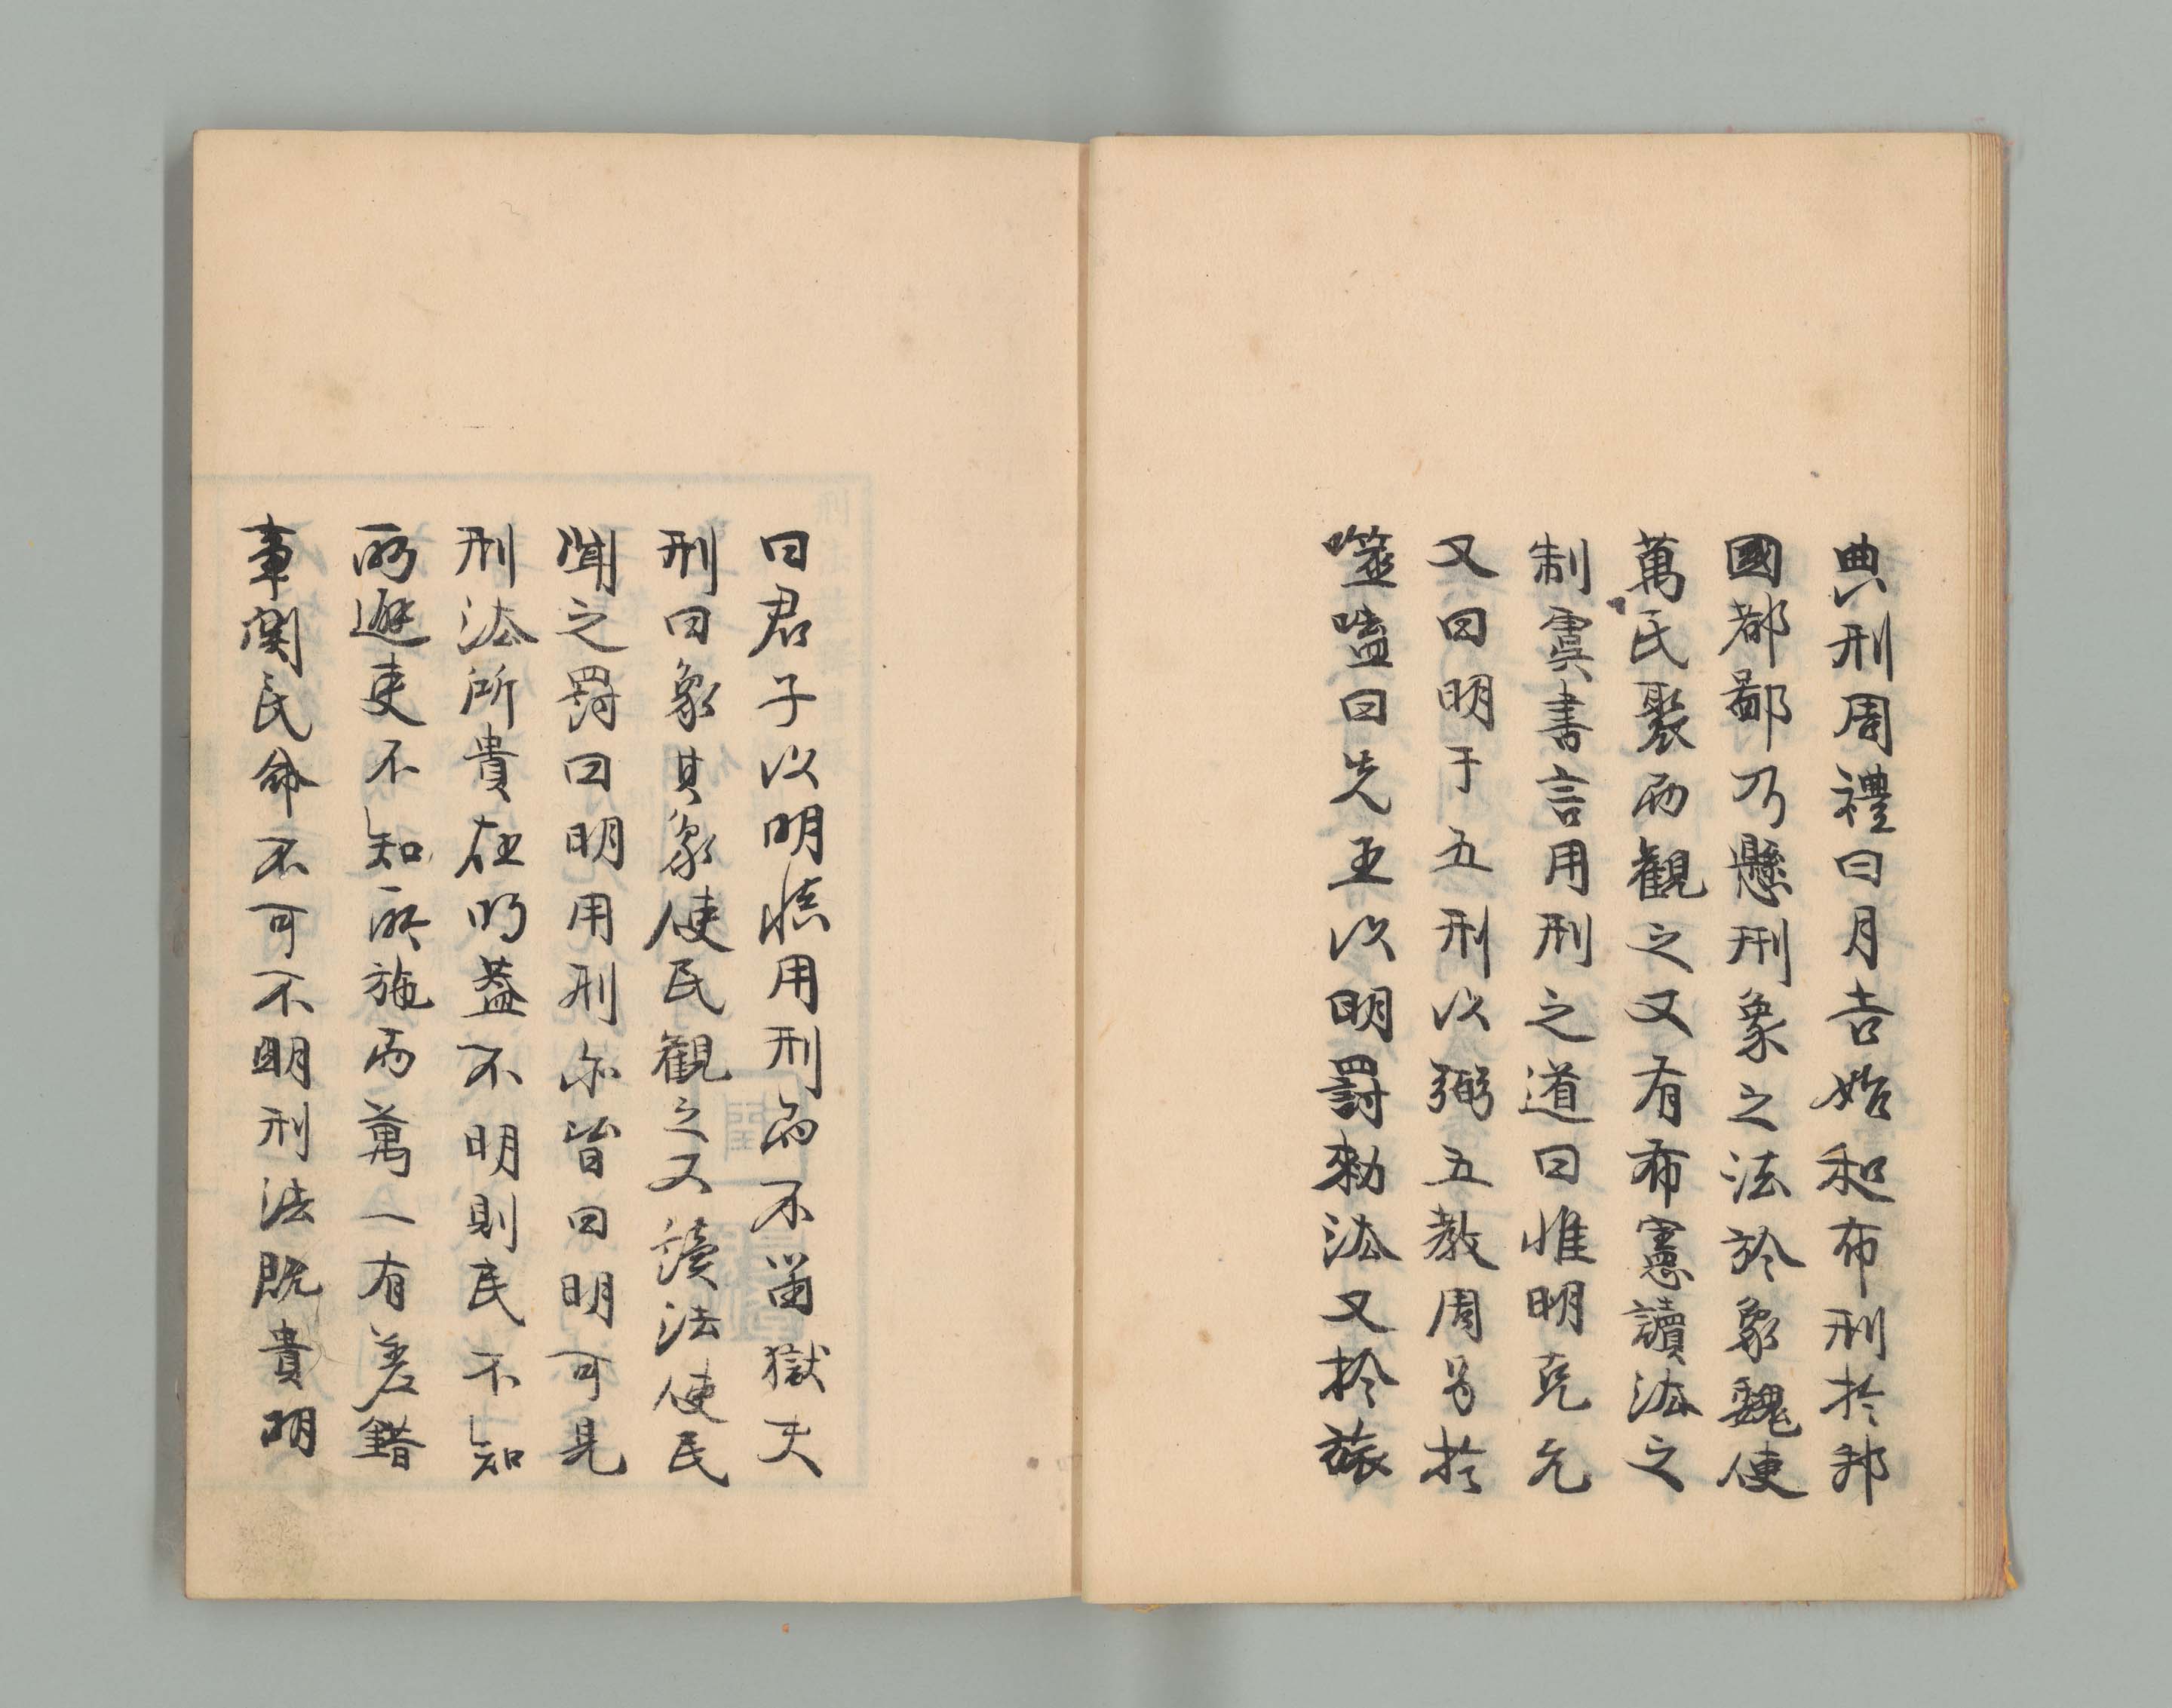 典刑周禮曰月吉始和布刑於邦
國都鄙乃懸刑象之法於象魏使
萬民聚而觀之又有布憲讀法之
制虞書言用刑之道曰惟明克允
又曰明于五刑以弼五教周易於
噬嗑曰先王以明罰勅法又於旅
曰君子以明慎用刑而不留獄夫
刑曰象其象使民觀之又讀法使民
聞之罰曰明用刑亦皆曰明可見
刑法所貴在明蓋不明則民不知
所避吏不知所施而萬一有差錯
事関民命不可不明刑法既貴明